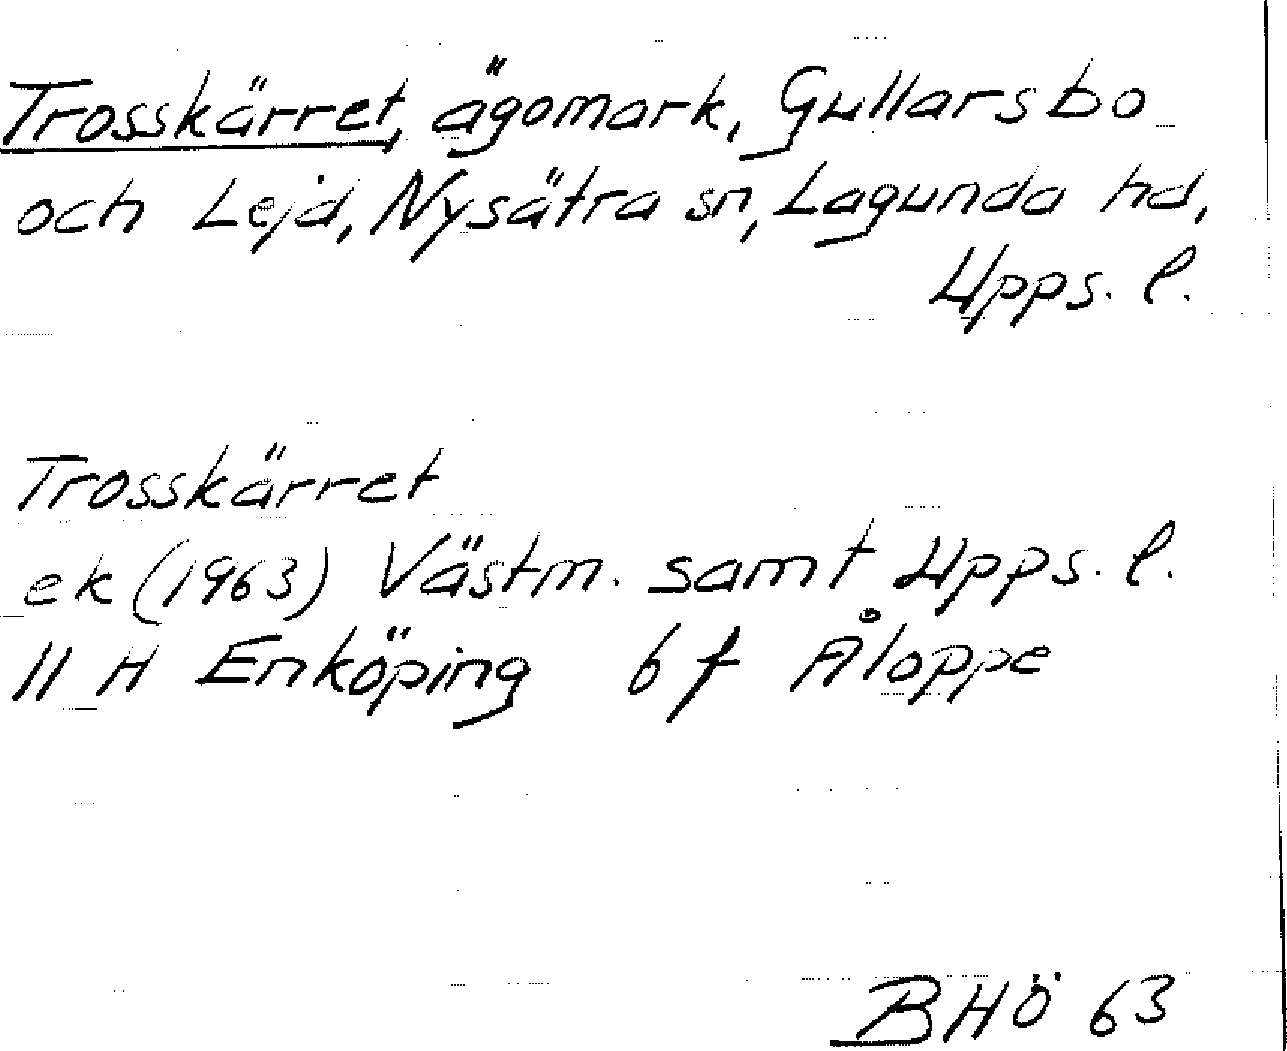 Trosskärret, ägomark, Gullarsbo
och Lejd, Nysätra sn, Lagunda hd,
Upps. l.
Trosskärret
ek (1963) Västm. samt Upps. l.
11 H Enköping 6 f Åloppe
BHÖ 63